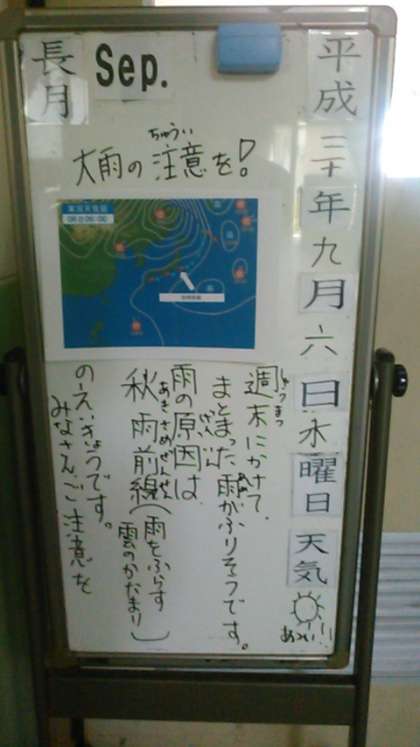 長月
Sep.
ちゅうい
大雨の注意を!
06日06:00
平成三十年九月六日木曜日天気
あつい!!
しゅうまつ
週末にかけて、
まとまった雨がふりそうです。
あめ
げんいん
雨の原因は
あきさめぜんせん
秋雨前線(雨をふらす
雲のかたまり)
のえいきょうです。
みなさんご注意を